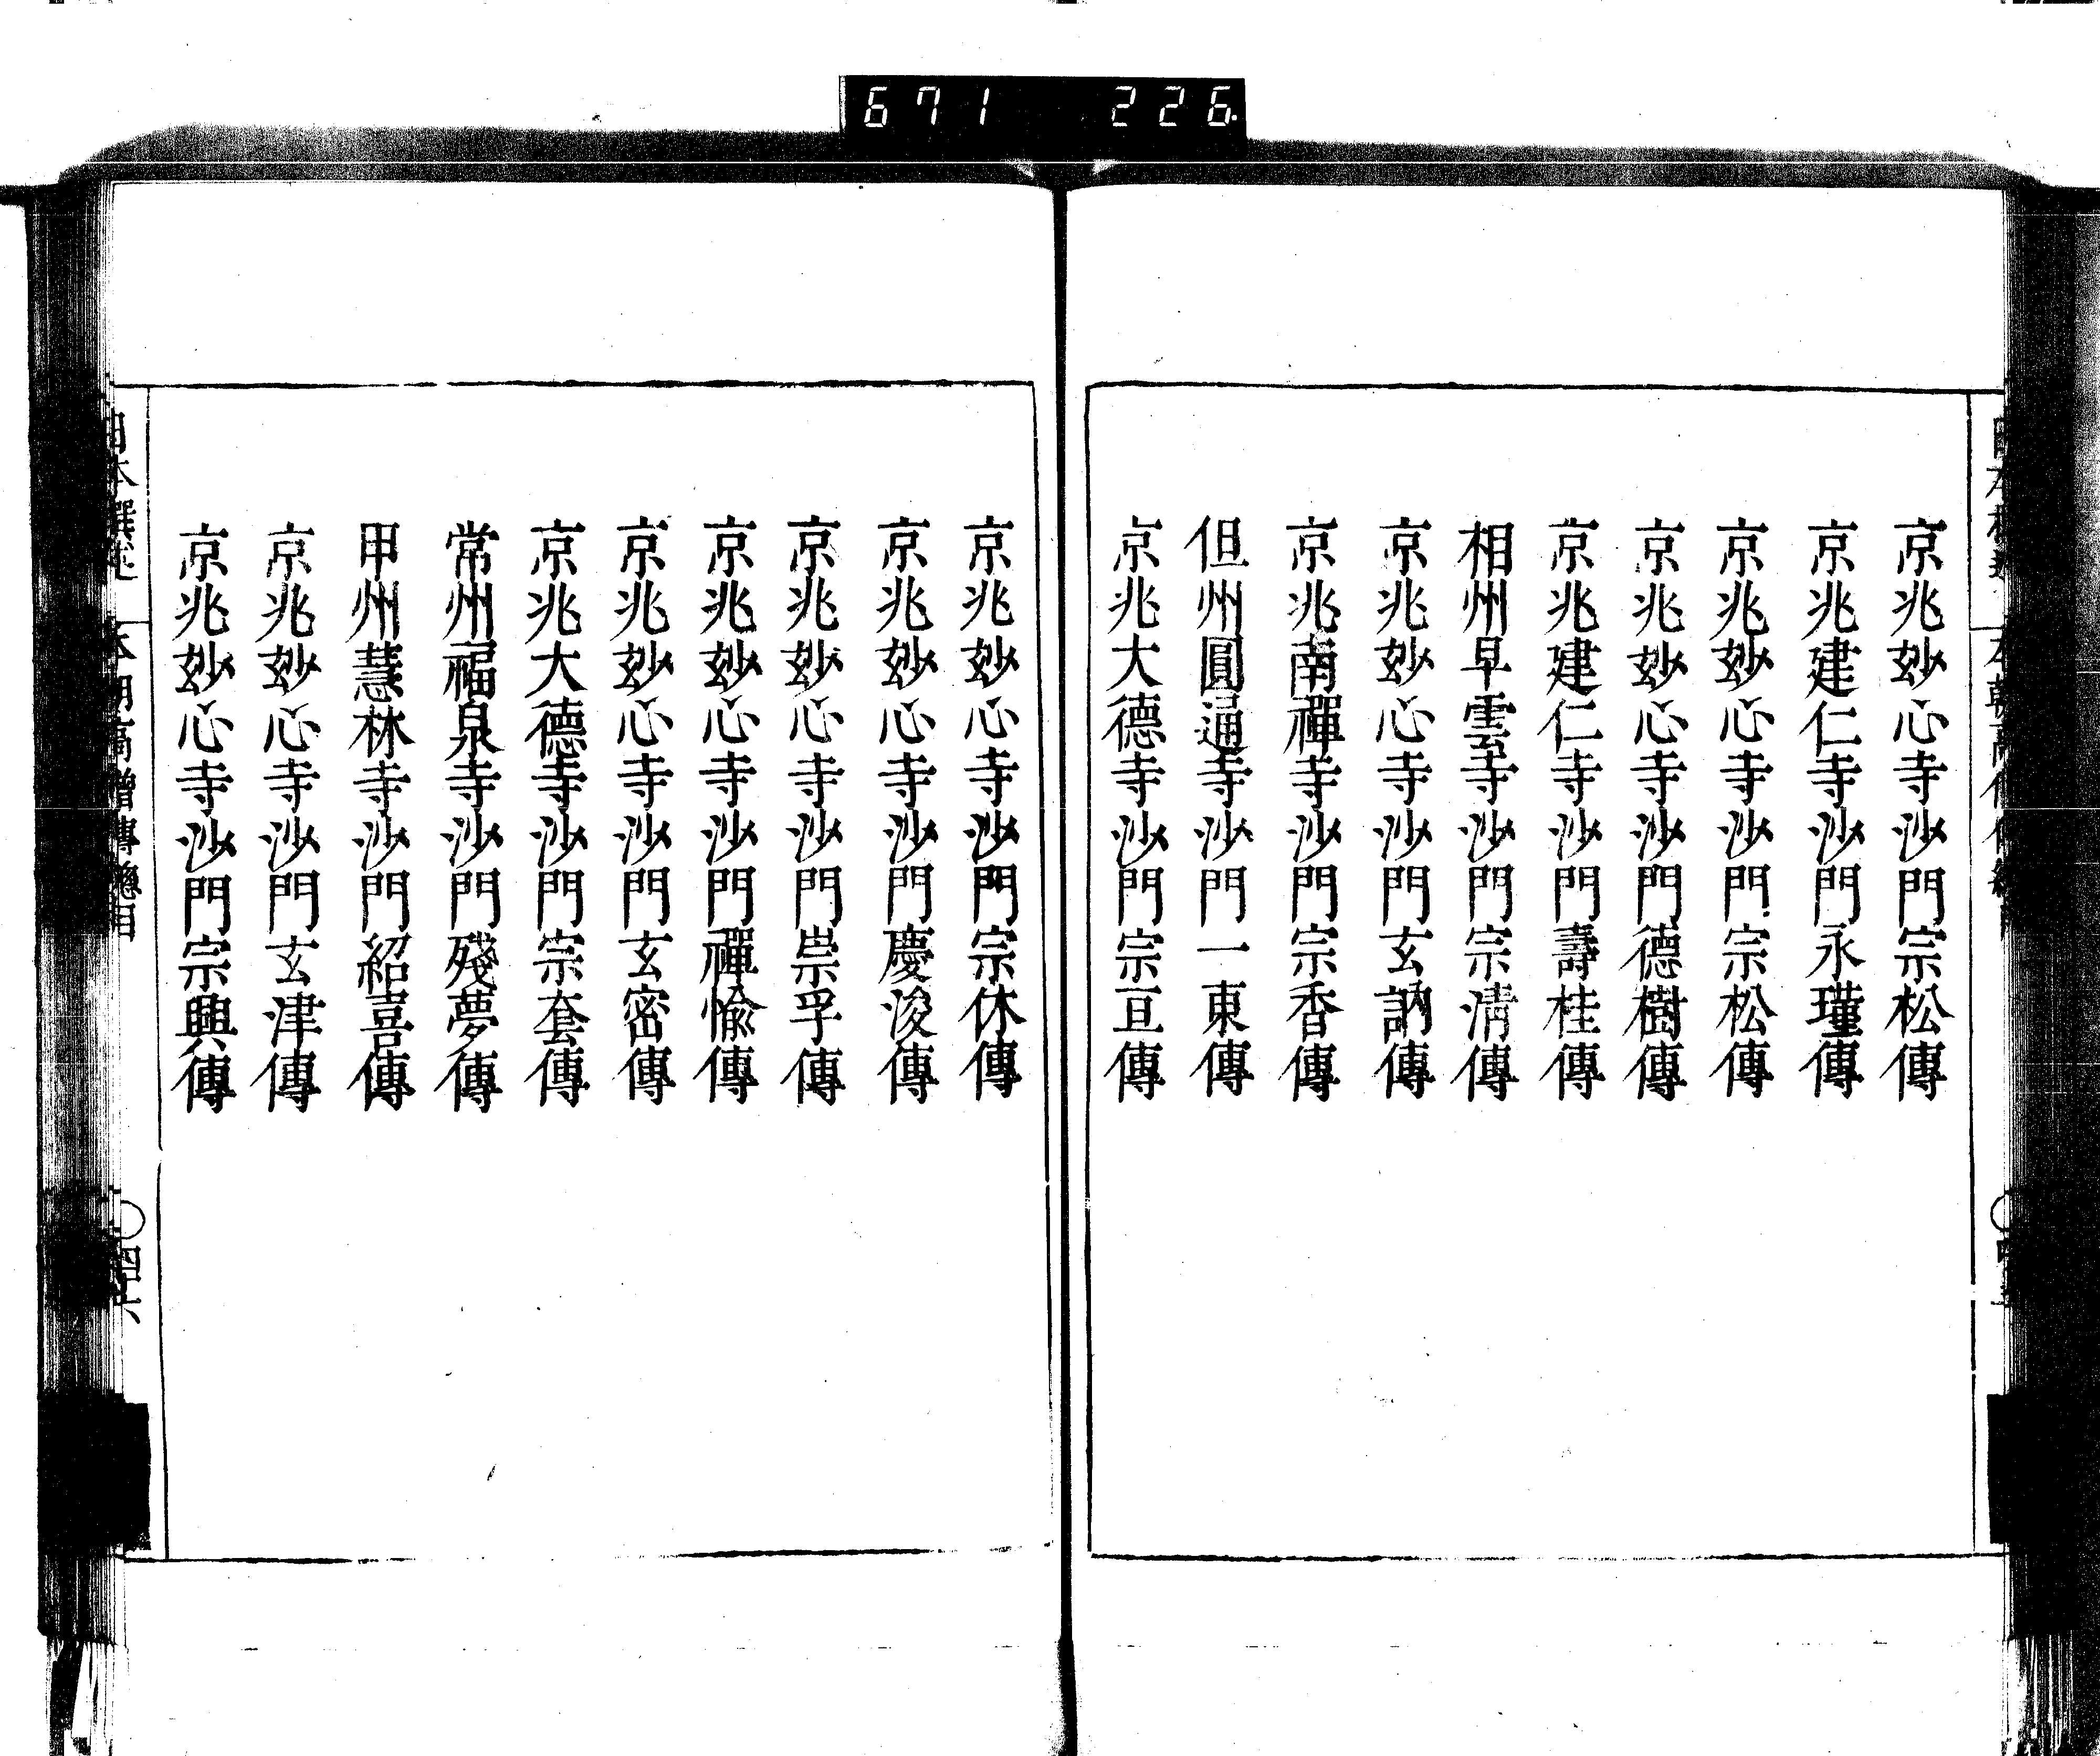 671 226
京兆妙心寺沙門宗松傳
京兆建仁寺沙門永瑾傳
京兆妙心寺沙門宗松傳
京兆妙心寺沙門德樹傳
京兆建仁寺沙門壽桂傳
相州早雲寺沙門宗清傳
京兆妙心寺沙門玄訥傳
京兆南禪寺沙門宗香傳
但州圓通寺沙門一東傳
京兆大德寺沙門宗亘傳
京兆妙心寺沙門宗休傳
京兆妙心寺沙門慶浚傳
京兆妙心寺沙門崇孚傳
京兆妙心寺沙門禪愉傳
京兆妙心寺沙門玄密傳
京兆大德寺沙門宗套傳
常州福泉寺沙門殘夢傳
甲州慧林寺沙門紹喜傳
京兆妙心寺沙門玄津傳
京兆妙心寺沙門宗興傳
本朝高僧傳總目